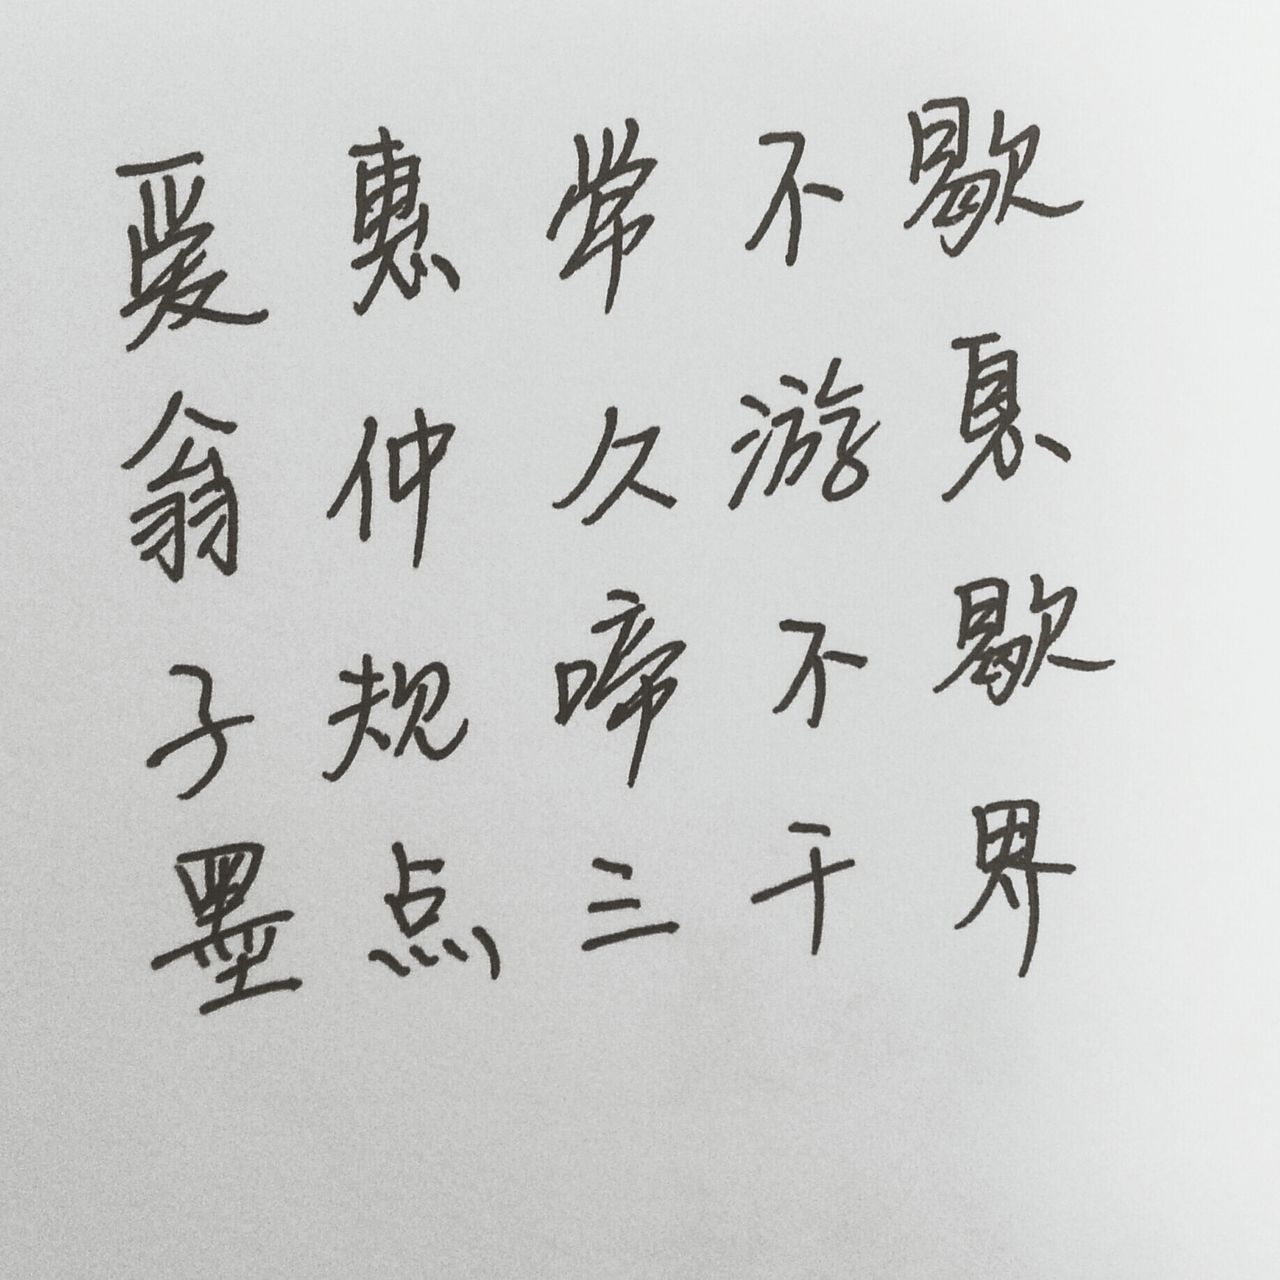 惠常不歇
翁仲久游夏
子规啼不歇
墨点三千界